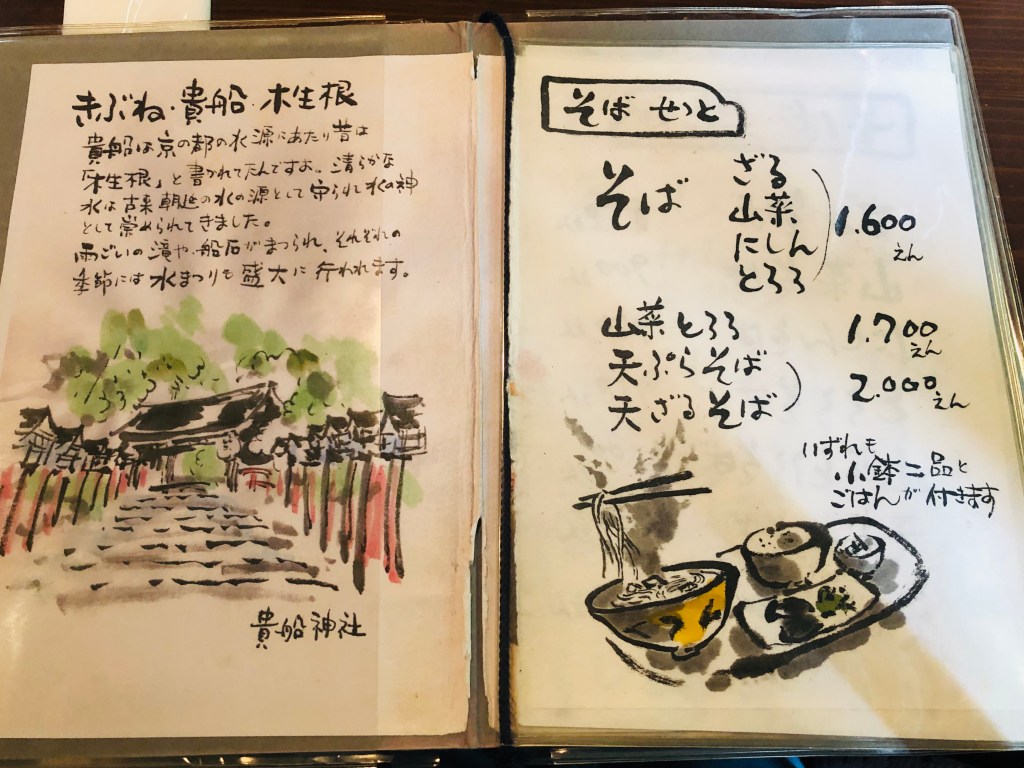 きぶね・貴船・木生根
貴船は京の都の水源にあたり昔は
「木生根」と書かれてたんですよ。清らかな
水は古来朝廷の水の源として守られ水の神
として崇められてきました。
雨ごいの滝や、船石がまつられ、それぞれの
季節には水まつりも盛大に行われます。
貴船神社
そば せっと
そば
ざる
山菜
にしん
とろろ
1.600
えん
山菜とろろ 1.700
えん
天ぷらそば
天ざるそば
2.000
えん
いずれも
小鉢二品と
ごはんが付きます